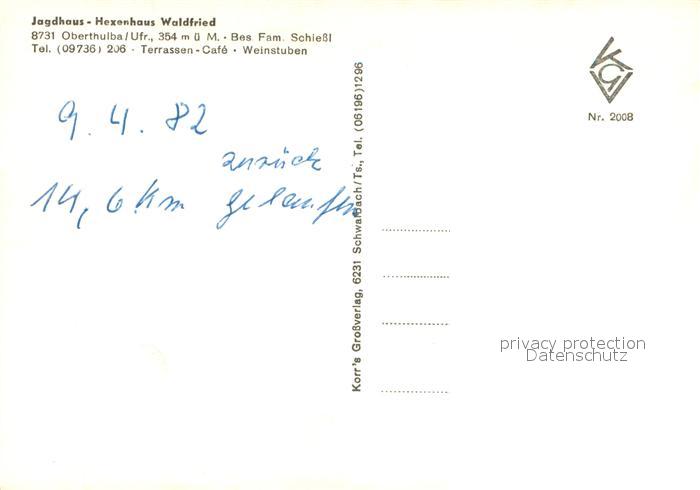 Jagdhaus - Hexenhaus Waldfried
8731 Oberthulba/Ufr., 354 m ü M. · Bes Fam. Schießl
Tel. (09736) 206 · Terrassen-Café · Weinstuben
9. 4. 82
zurück
14,6 Km gelaufen
Korr's Großverlag, 6231 Schwalbach/Ts., Tel. (06196)1296
KGV
Nr. 2008
privacy protection
Datenschutz